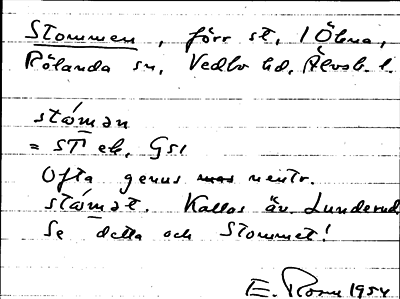 Stommen, förr st, i Öbna,
Rölanda sn, Vedbo hd, Älvsb. l.
stómən
= ST ek, Gs1
Ofta genus neutr.
stómət. Kallas äv. Lunderud.
Se detta och Stommet!
E. 1954